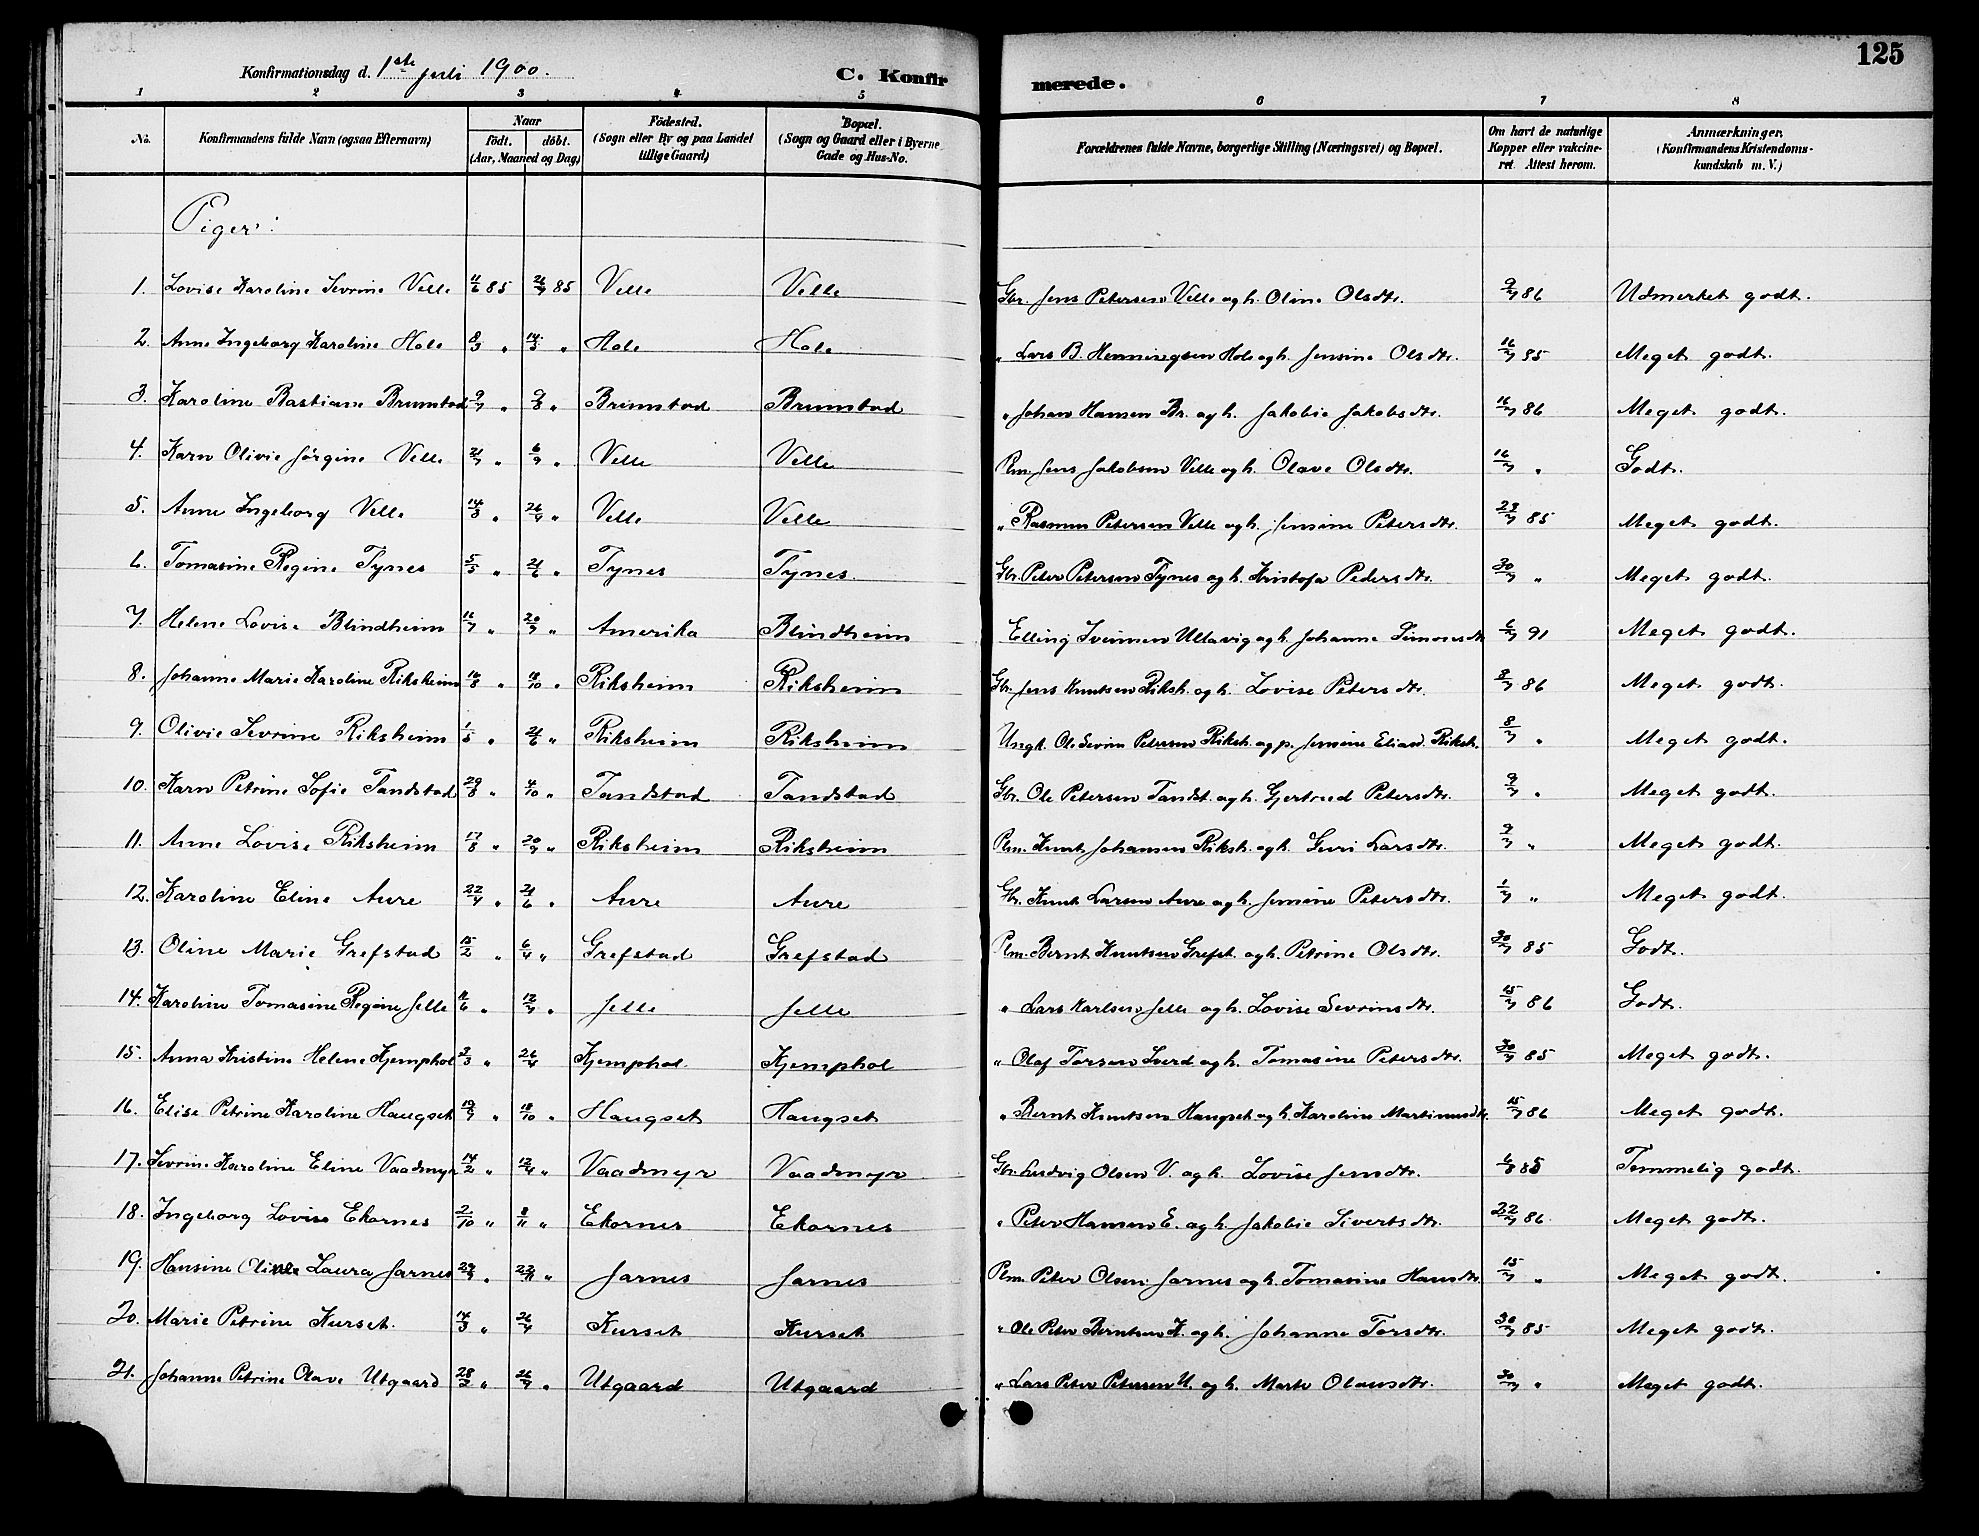 125
Konfirmationsdag d. 1ste juli 1900.
C. Konfirmerede.
1 2 3 4 5 6 7 8
No. Konfirmandens fulde Navn (ogsaa Efternavn) Naar födt. döbt. (Aar, Maaned og Dag) Födested. (Sogn eller By og paa Landet tillige Gaard) Bopæl. (Sogn og Gaard eller i Byerne Gade og Hus-No. Forældrenes fulde Navne, borgerlige Stilling (Næringsvei) og Bopæl. Om havt de naturlige Kopper eller vakcineret. Attest herom. Anmærkninger. (Konfirmandens Kristendomskundskab m. V.)
Piger:
1. Lovise Karoline Sevrine Velle 11/6 85 26/7 85 Velle Velle Gbr. Jens Petersen Velle og h. Oline Olsdtr. 9/7 86 Udmerket godt.
2. Anne Ingeborg Karoline Hole 8/3 " 14/5 " Hole Hole " Lars B. Henningsen Hole og h. Jensine Olsdtr. 16/7 85 Meget godt.
3. Karoline Bastiane Brunstad 9/7 " 9/8 " Brunstad Brunstad " Johan Hansen Br. og h. Jakobie Jakobsdtr. 16/7 86 Meget godt.
4. Karn Olivie Jörgine Velle 21/7 " 6/9 " Velle Velle Plm. Jens Jakobsen Velle og h. Olave Olsdtr. 16/7 " Godt.
5. Anne Ingeborg Velle 14/3 " 26/4 " Velle Velle " Rasmus Petersen Velle og h. Jensine Petersdtr. 29/7 85 Meget godt.
6. Tomasine Regine Tynes 5/5 " 21/6 " Tynes Tynes. Gbr. Peter Petersen Tynes og h. Kristofa Pedersdtr. 30/7 " Meget godt.
7. Helene Lovise Blindheim 16/7 " 20/9 " Amerika Blindheim Elling Iversen Ullavig og h. Johanne Simonsdtr 6/7 91 Meget godt.
8. Johanne Marie Karoline Riksheim 16/8 " 18/10 " Riksheim Riksheim Gbr. Jens Knutsen Riksh. og h. Lovise Petersdtr. 8/7 86 Meget godt.
9. Olivie Sevrine Riksheim 1/5 " 21/6 " Riksheim Riksheim Ungk. Ole Sevrin Petersen Riksh. og p. Jensine Eliasd. Riksh. 8/7 " Meget godt.
10. Karn Petrine Sofie Tandstad 29/8 " 4/10 " Tandstad Tandstad Gbr. Ole Petersen Tandst. og h. Gjertrud Petersdtr. 9/7 " Meget godt.
11. Anne Lovise Riksheim 17/8 " 20/9 " Riksheim Riksheim Plm. Knut Johansen Riksh. og h. Guri Larsdtr. 9/7 " Meget godt.
12. Karoline Eline Aure 22/4 " 21/6 " Aure Aure Gbr. Knut Larsen Aure og h. Jensine Petersdtr. 1/7 " Meget godt.
13. Oline Marie Grefstad 15/2 " 6/4 " Grefstad Grefstad Plm. Bernt Knutsen Grefst. og h. Petrine Olsdtr. 30/7 85 Godt.
14. Karoline Tomasine Regine Jelle 11/6 " 12/7 " Jelle Jelle " Lars Karlsen Jelle og h. Lovise Sevrinsdtr. 15/7 86 Godt.
15. Anna Kristine Helene Kjemphol 3/3 " 26/4 Kjemphol. Kjemphol " Olaf Torsen Sverd og h. Tomasine Petersdtr. 30/7 85 Meget godt.
16. Elise Petrine Karoline Haugset 19/7 " 18/10 " Haugset Haugset " Bernt Knutsen Haugset og h. Karoline Martinusdtr. 15/7 86 Meget godt.
17. Sevrine Karoline Eline Vaadmyr 14/2 " 12/4 " Vaadmyr Vaadmyr Gbr. Ludvig Olsen V. og h. Lovise Jensdtr. 6/8 85 Temmelig godt.
18. Ingeborg Lovise Ekornes 2/10 " 8/11 " Ekornes Ekornes " Peter Hansen E. og h. Jakobie Sivertsdtr. 22/7 86. Meget godt.
19. Hansine Oline Laura Jarnes 29/9 " 22/11 " Jarnes Jarnes Plm. Peter Olsen Jarnes og h. Tomasine Hansdtr. 15/7 " Meget godt.
20. Marie Petrine Kurset. 14/3 " 26/4 Kurset Kurset " Ole Peter Berntsen K. og h. Johanne Torsdtr. 30/7 85 Meget godt.
21. Johanne Petrine Olave Utgaard 28/2 " 26/4 " Utgaard Utgaard " Lars Peter Petersen U. og h. Marte Olausdtr. 30/7 " Meget godt.